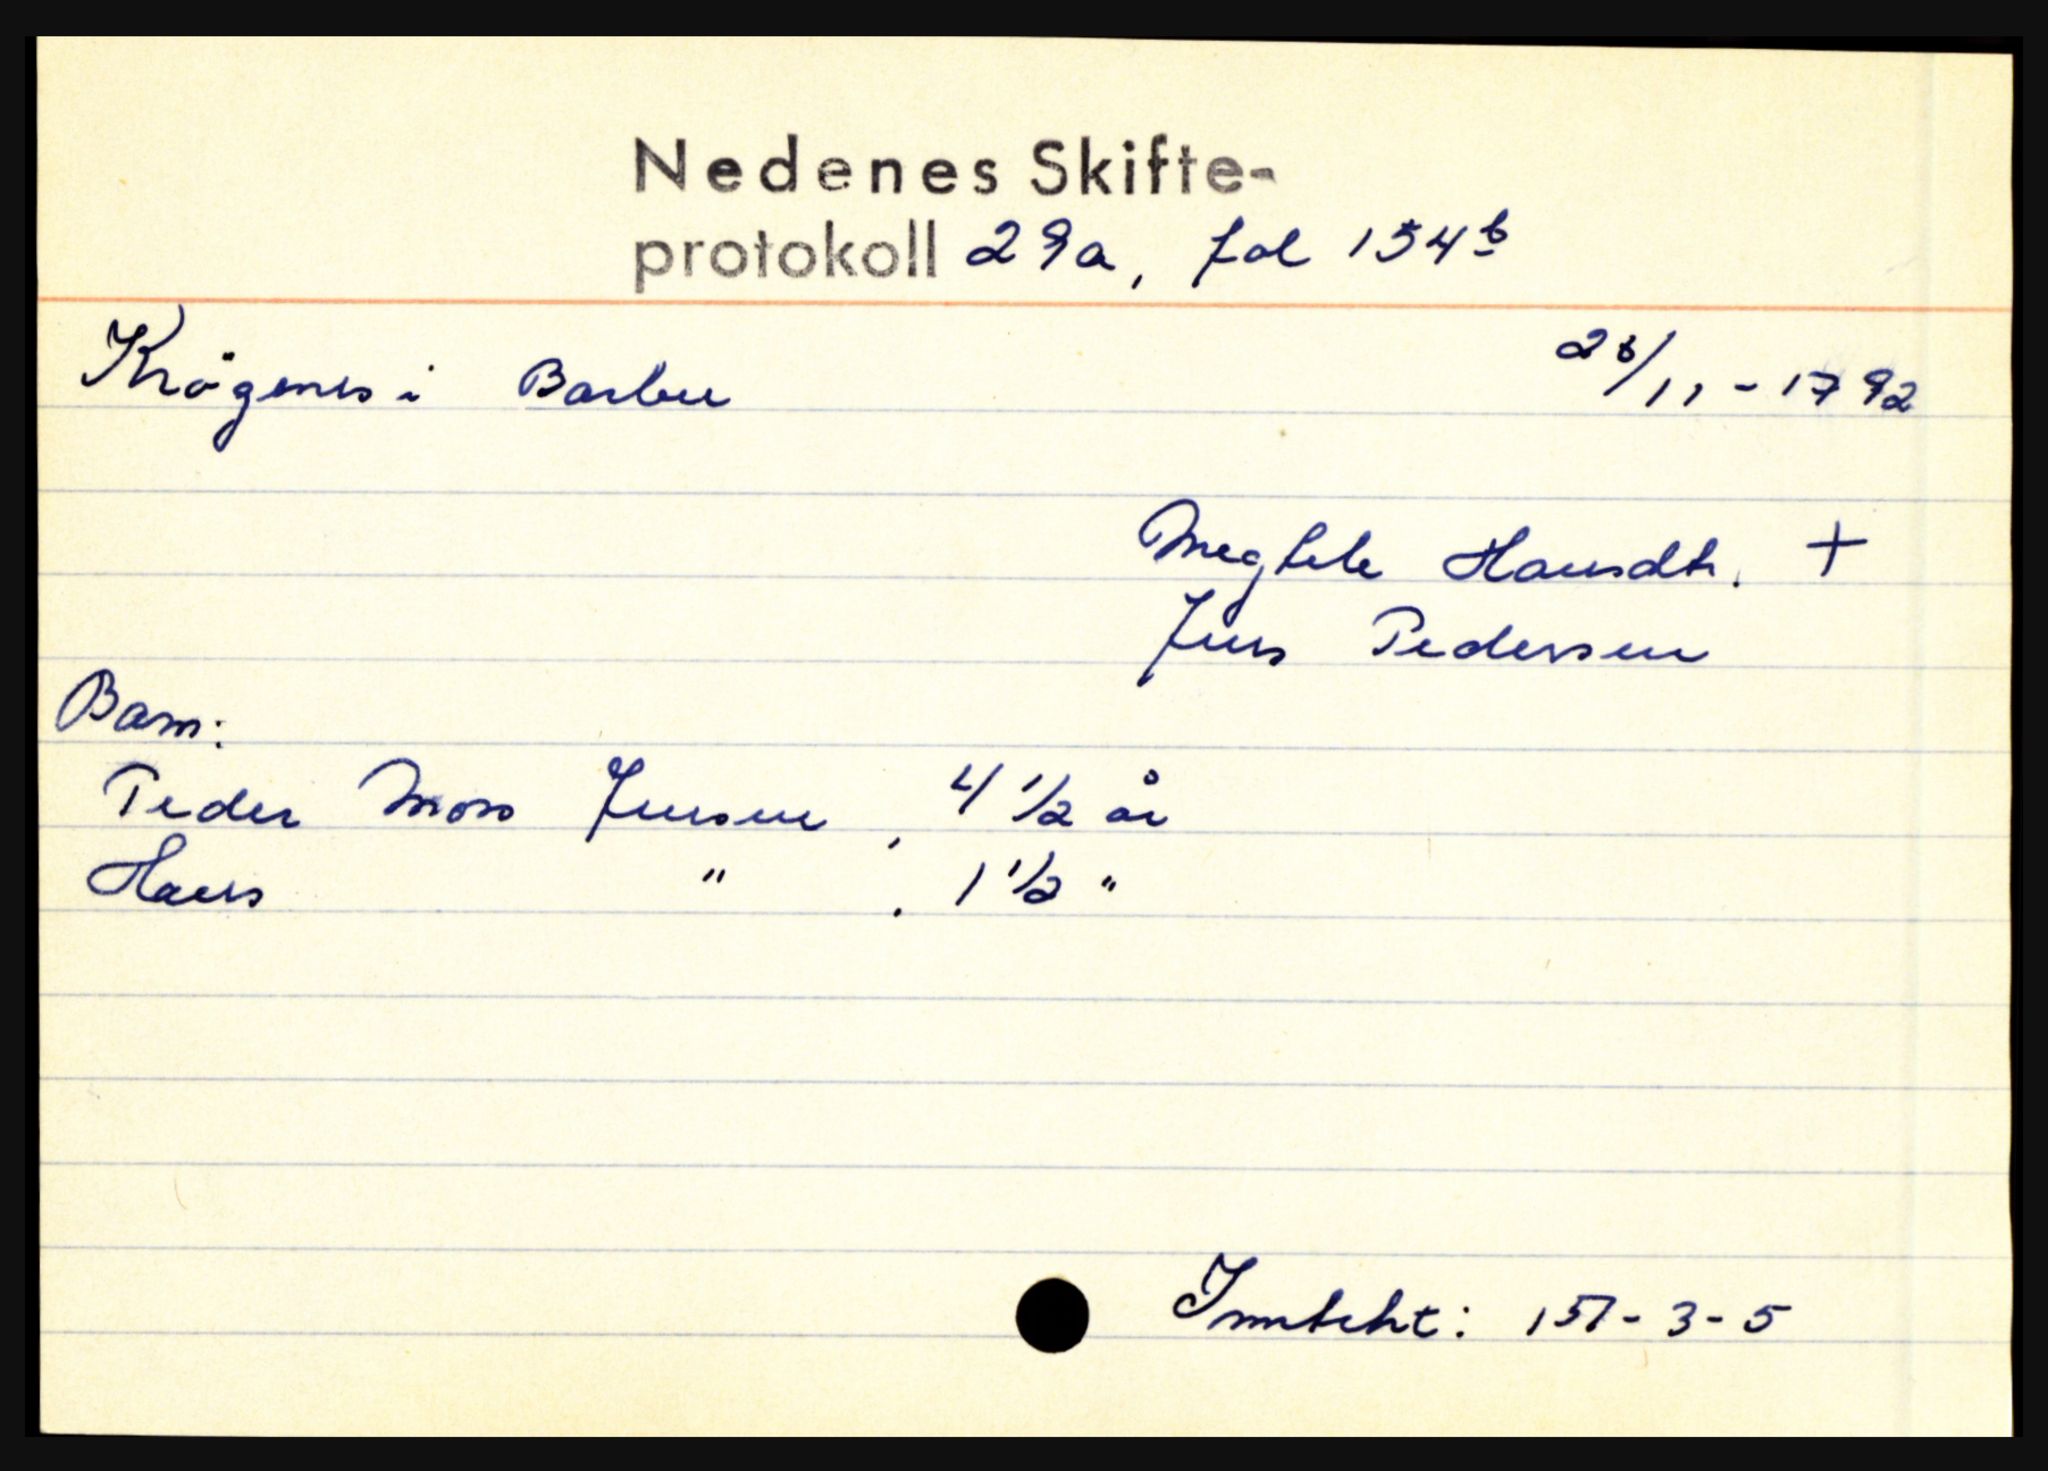 Nedenes Skifte-
protokoll 29a, fol 154b
Krögenes i Barbu 28/11-1792
Megtele Hansdtr. +
Jens Pedersen
Barn:
Peder Moss Jensen, 4 1/2 år
Hans " . 1 1/2 "
Inntekt: 151-3-5